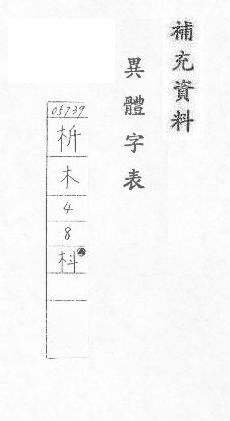 補充資料
異體字表
05739
枅
木
4
8
枓